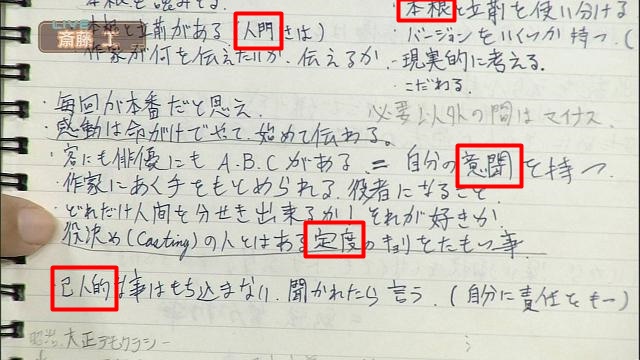 LIVE
斎藤 工
本根と立前がある(人門
作家が何を伝えたいか. 伝えるか
・本根と立前を使い分ける
・バージョンをいくつか持つ. (
・現実的に考える.
・こだわる.
・毎回が本番だと思え.
必要以外の間はマイナス.
・感動は命がけでやって、始めて伝わる。
・客にも俳優にもA.B.Cがある = 自分の意聞を持つ
・作家にあく手をもとめられる役者になること
・どれだけ人間を分せき出来るか! それが好きか
役決め(Casting)の人とはある定度のキョリをたもつ事.
・己人的な事はもち込まない. 聞かれたら言う. (自分に責任をもつ)
大正デモクラシー